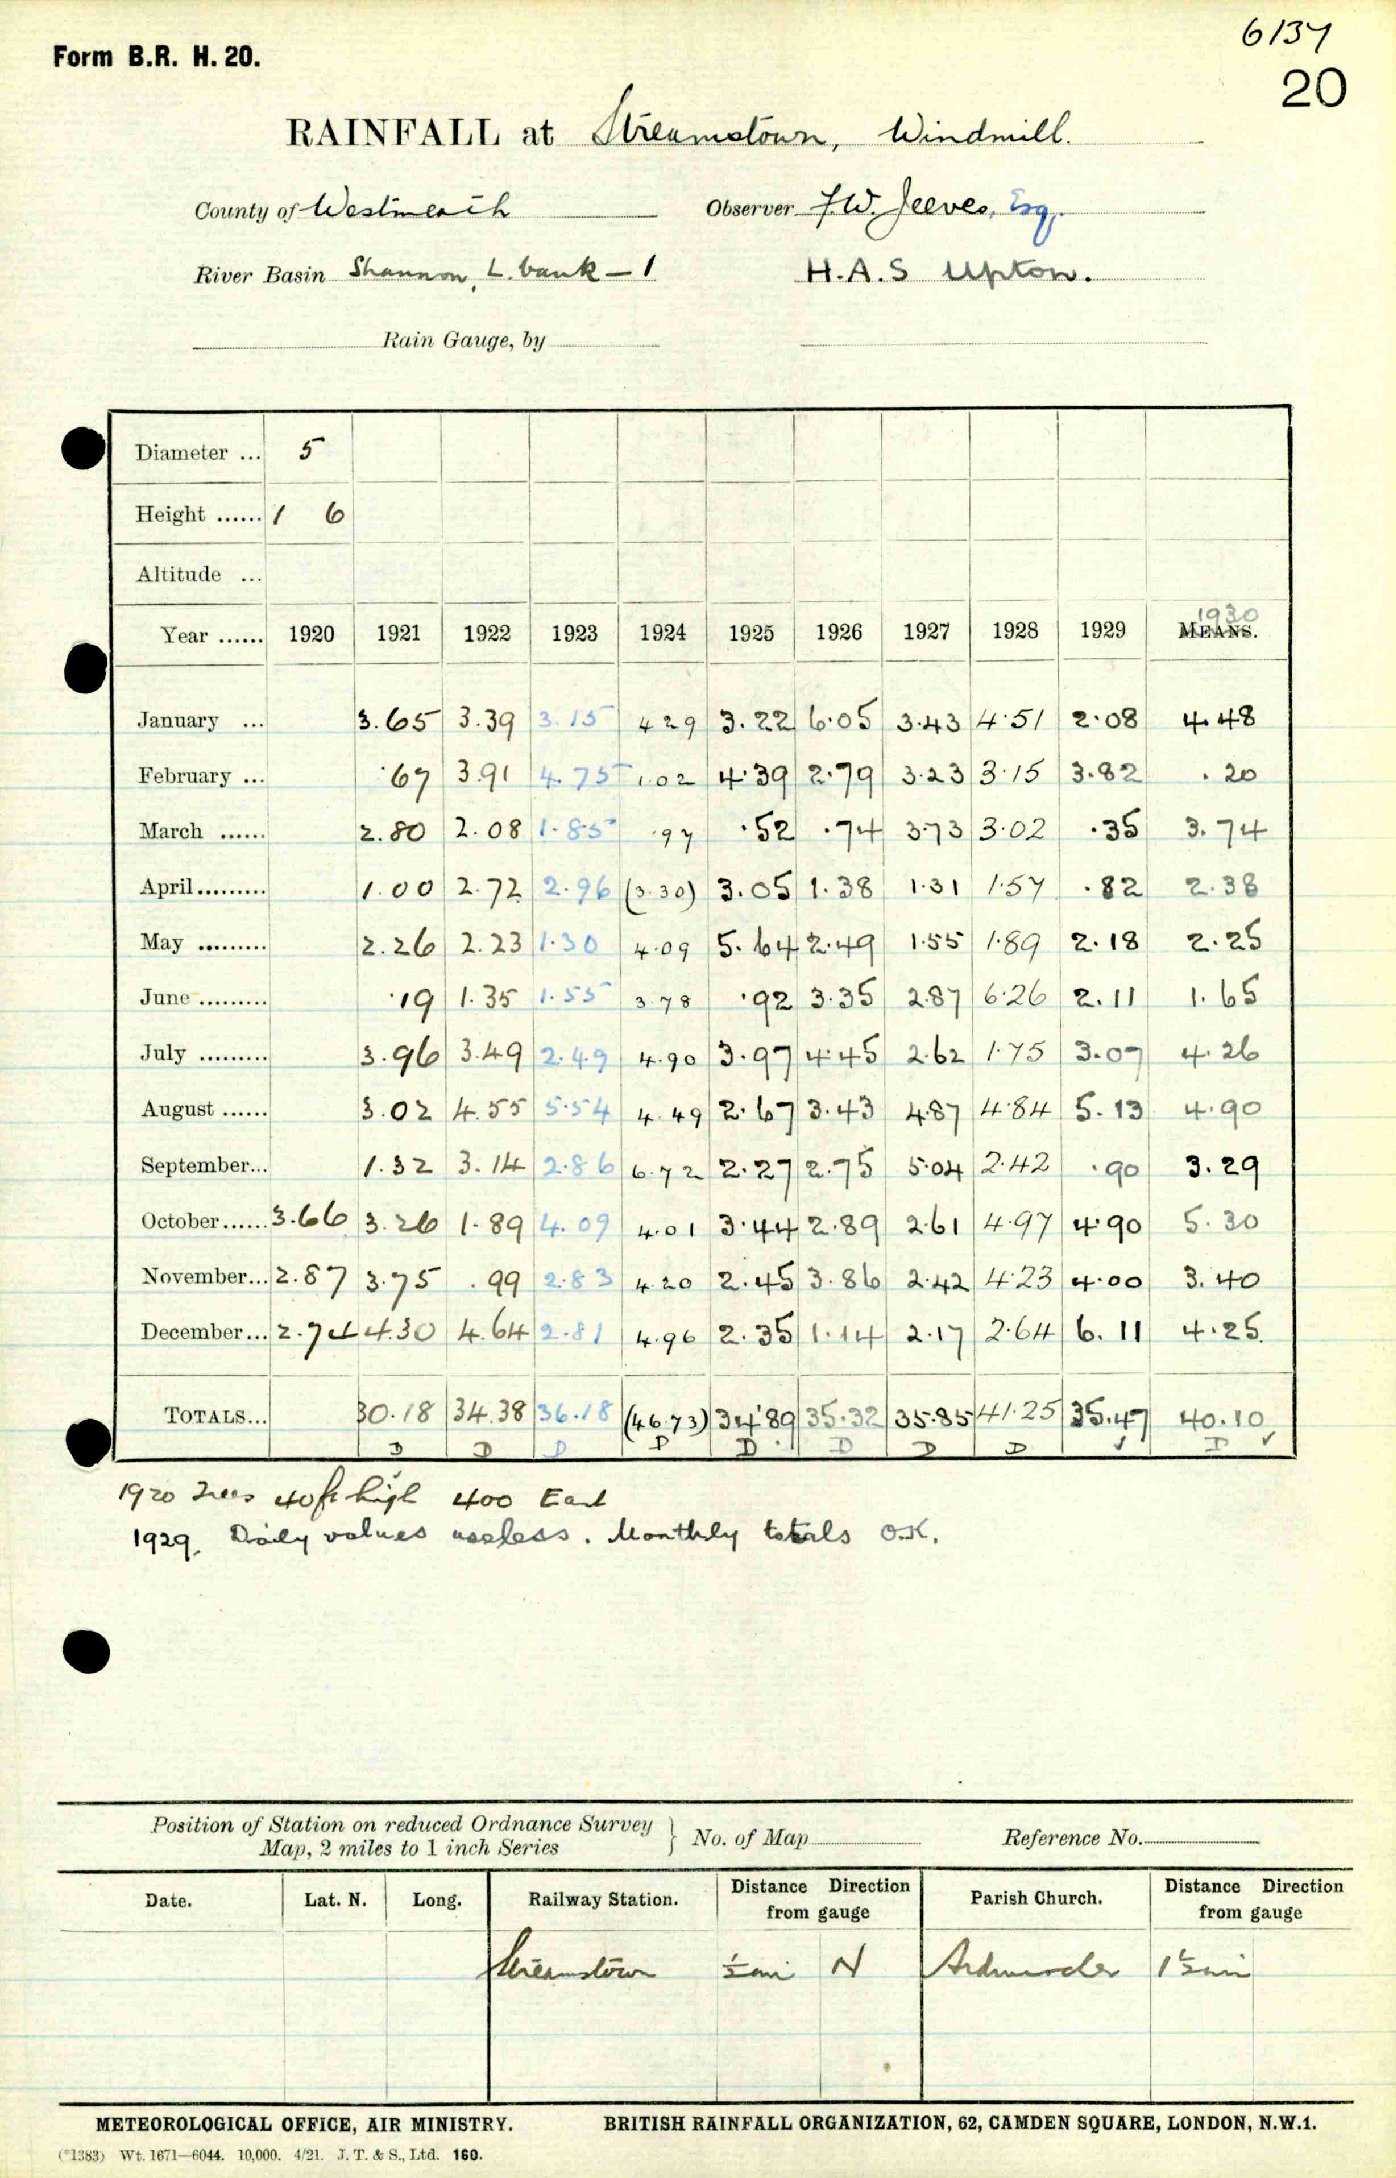 6137
Form B.R. H. 20.
20
RAINFALL at Streamstown, Windmill.
County of Westmeath Observer F.W. Jeeves, Esq.
River Basin Shannon, L. bank - 1 H.A.S Upton.
Rain Gauge, by
Diameter ... 5
Height ...... 1 6
Altitude ...
1930
Year ...... 1920 1921 1922 1923 1924 1925 1926 1927 1928 1929 MEANS.
January ... 3.65 3.39 3.15 4.29 3.22 6.05 3.43 4.51 2.08 4.48
February ... .67 3.91 4.75 1.02 4.39 2.79 3.23 3.15 3.82 .20
March ...... 2.80 2.08 1.85 .97 .52 .74 3.73 3.02 .35 3.74
April......... 1.00 2.72 2.96 (3.30) 3.05 1.38 1.31 1.57 .82 2.38
May ......... 2.26 2.23 1.30 4.09 5.64 2.49 1.55 1.89 2.18 2.25
June ......... .19 1.35 1.55 3.78 .92 3.35 2.87 6.26 2.11 1.65
July ......... 3.96 3.49 2.49 4.90 3.97 4.45 2.62 1.75 3.07 4.26
August ...... 3.02 4.55 5.54 4.49 2.67 3.43 4.87 4.84 5.13 4.90
September... 1.32 3.14 2.86 6.72 2.27 2.75 5.04 2.42 .90 3.29
October...... 3.66 3.26 1.89 4.09 4.01 3.44 2.89 2.61 4.97 4.90 5.30
November... 2.87 3.75 .99 2.83 4.20 2.45 3.86 2.42 4.23 4.00 3.40
December... 2.74 4.30 4.64 2.81 4.96 2.35 1.14 2.17 2.64 6.11 4.25
TOTALS... 30.18 34.38 36.18 (46.73) 34.89 35.32 35.85 41.25 35.47 40.10
D D D D D D D D ✓ D ✓
1920 Trees 40 ft high 400 East
1929. Daily values useless. Monthly totals O.K.
Position of Station on reduced Ordnance Survey
Map, 2 miles to 1 inch Series } No. of Map Reference No.
Date. Lat. N. Long. Railway Station. Distance Direction from gauge Parish Church. Distance Direction from gauge
Streamstown ½ mi N 1½ mi
METEOROLOGICAL OFFICE, AIR MINISTRY. BRITISH RAINFALL ORGANIZATION, 62, CAMDEN SQUARE, LONDON, N.W.1.
(*1383) Wt. 1671—6044. 10,000. 4/21. J. T. & S., Ltd. 160.